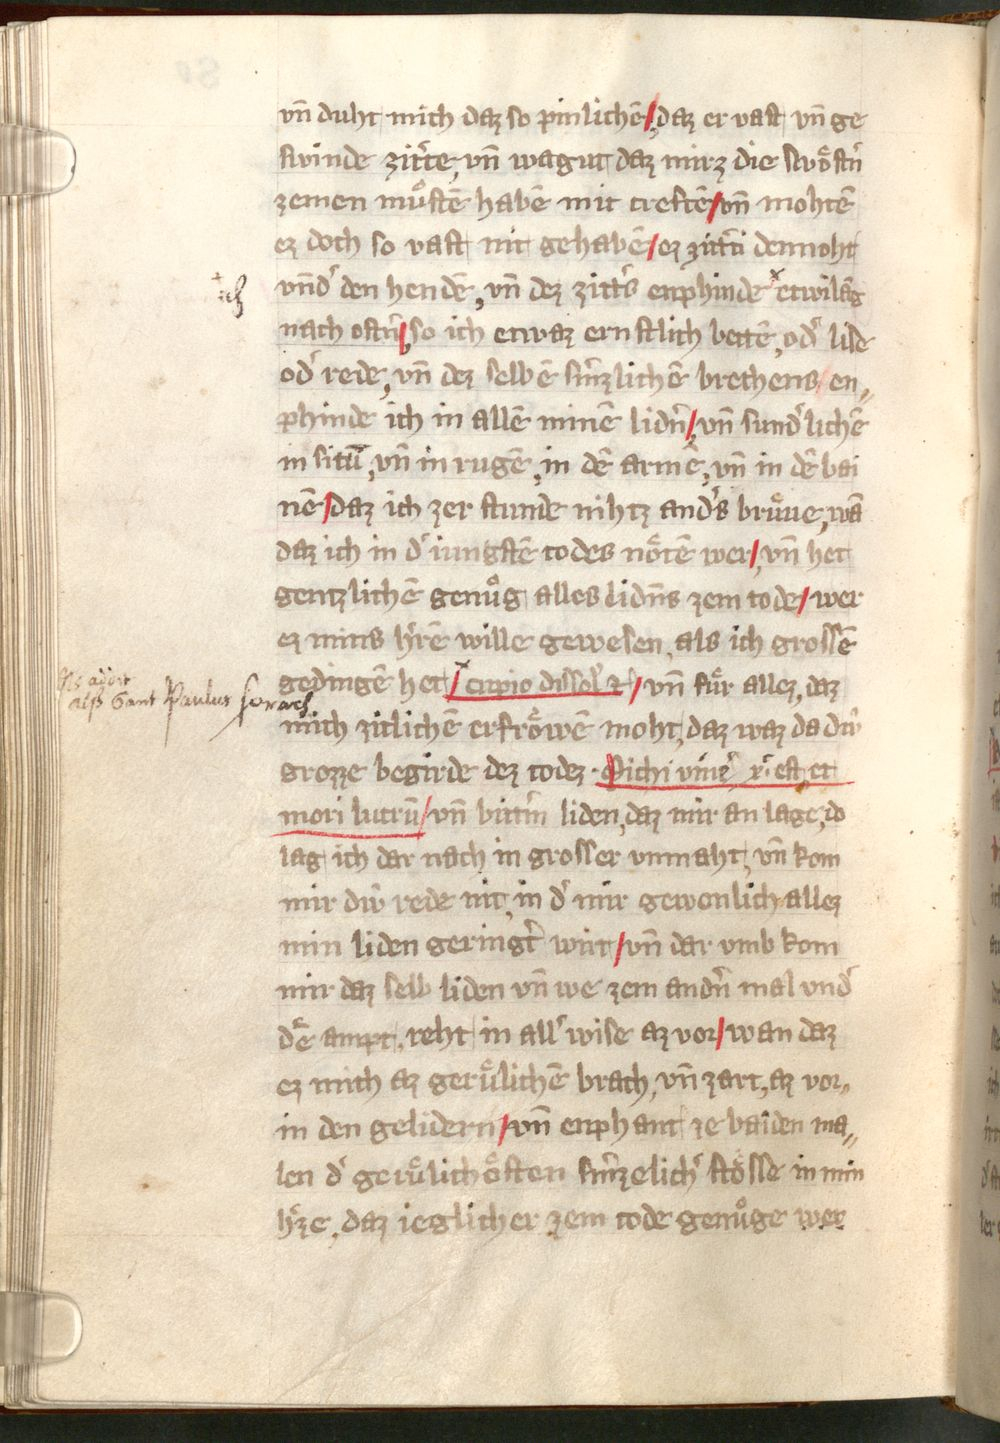 vn̄ duht mich daz so pinlichē / daz er vast vn̄ ge
swinde zitt̕te, vn̄ wagut daz mirz die swöstn̄
zemen mu̍stē habē mit creftē / vn̄ mohtē
ez doch so vast nit gehabē / ez zittti dennoht
vnd̕ den hendē, vn̄ dez zitt̕s enphinde etwilāg
ich
nach ostn̄ / so ich etwaz ernstlich bettē, od̕ lise
od̕ rede, vn̄ dez selbē sm̄zlichē brechens / en„
phinde ich in allē minē lidn̄ / vn̄ sund̕lichē
in sitū, vn̄ in rugē, in dē armē, vn̄ in dē bai
nē / daz ich zer stunde nihtz and̕s brüue, wā
daz ich in d̕ iungstē todes nötē wer / vn̄ het
gentzlichē genuͦg alles lidn̄s zem tode / wer
ez mins h̕rē wille gewesen, als ich grossē
gedingē het / cupio dissol̕ et / vn̄ für allez, daz
alß Sant Paulus sprach
mich zitlichē erfröwē moht, daz waz da dıv̍
grozze begirde dez todez · Michi viue̕ xc̄ est, et
mori lucrū / vn̄ bittn̄ liden, daz mir an lage, do
lag ich dar nach in grosser vnmaht, vn̄ kom
mir dıv̍ rede nit, in d̕ mir gewonlich allez
min liden geringt̕ wirt / vn̄ dar vmb kom
mir daz selb liden vn̄ we zem andn̄ mal vnd̕
dē ampt, reht in all̕ wise az vor / wan daz
ez mich az gerülichē brach, vn̄ zart, az vor„
in den gelidern / vn̄ enphant ze baiden ma„
len d̕ gerülichösten sm̄zelich̕ stösse in min
h̕ze, daz ieglicher zem tode genuͦge wer